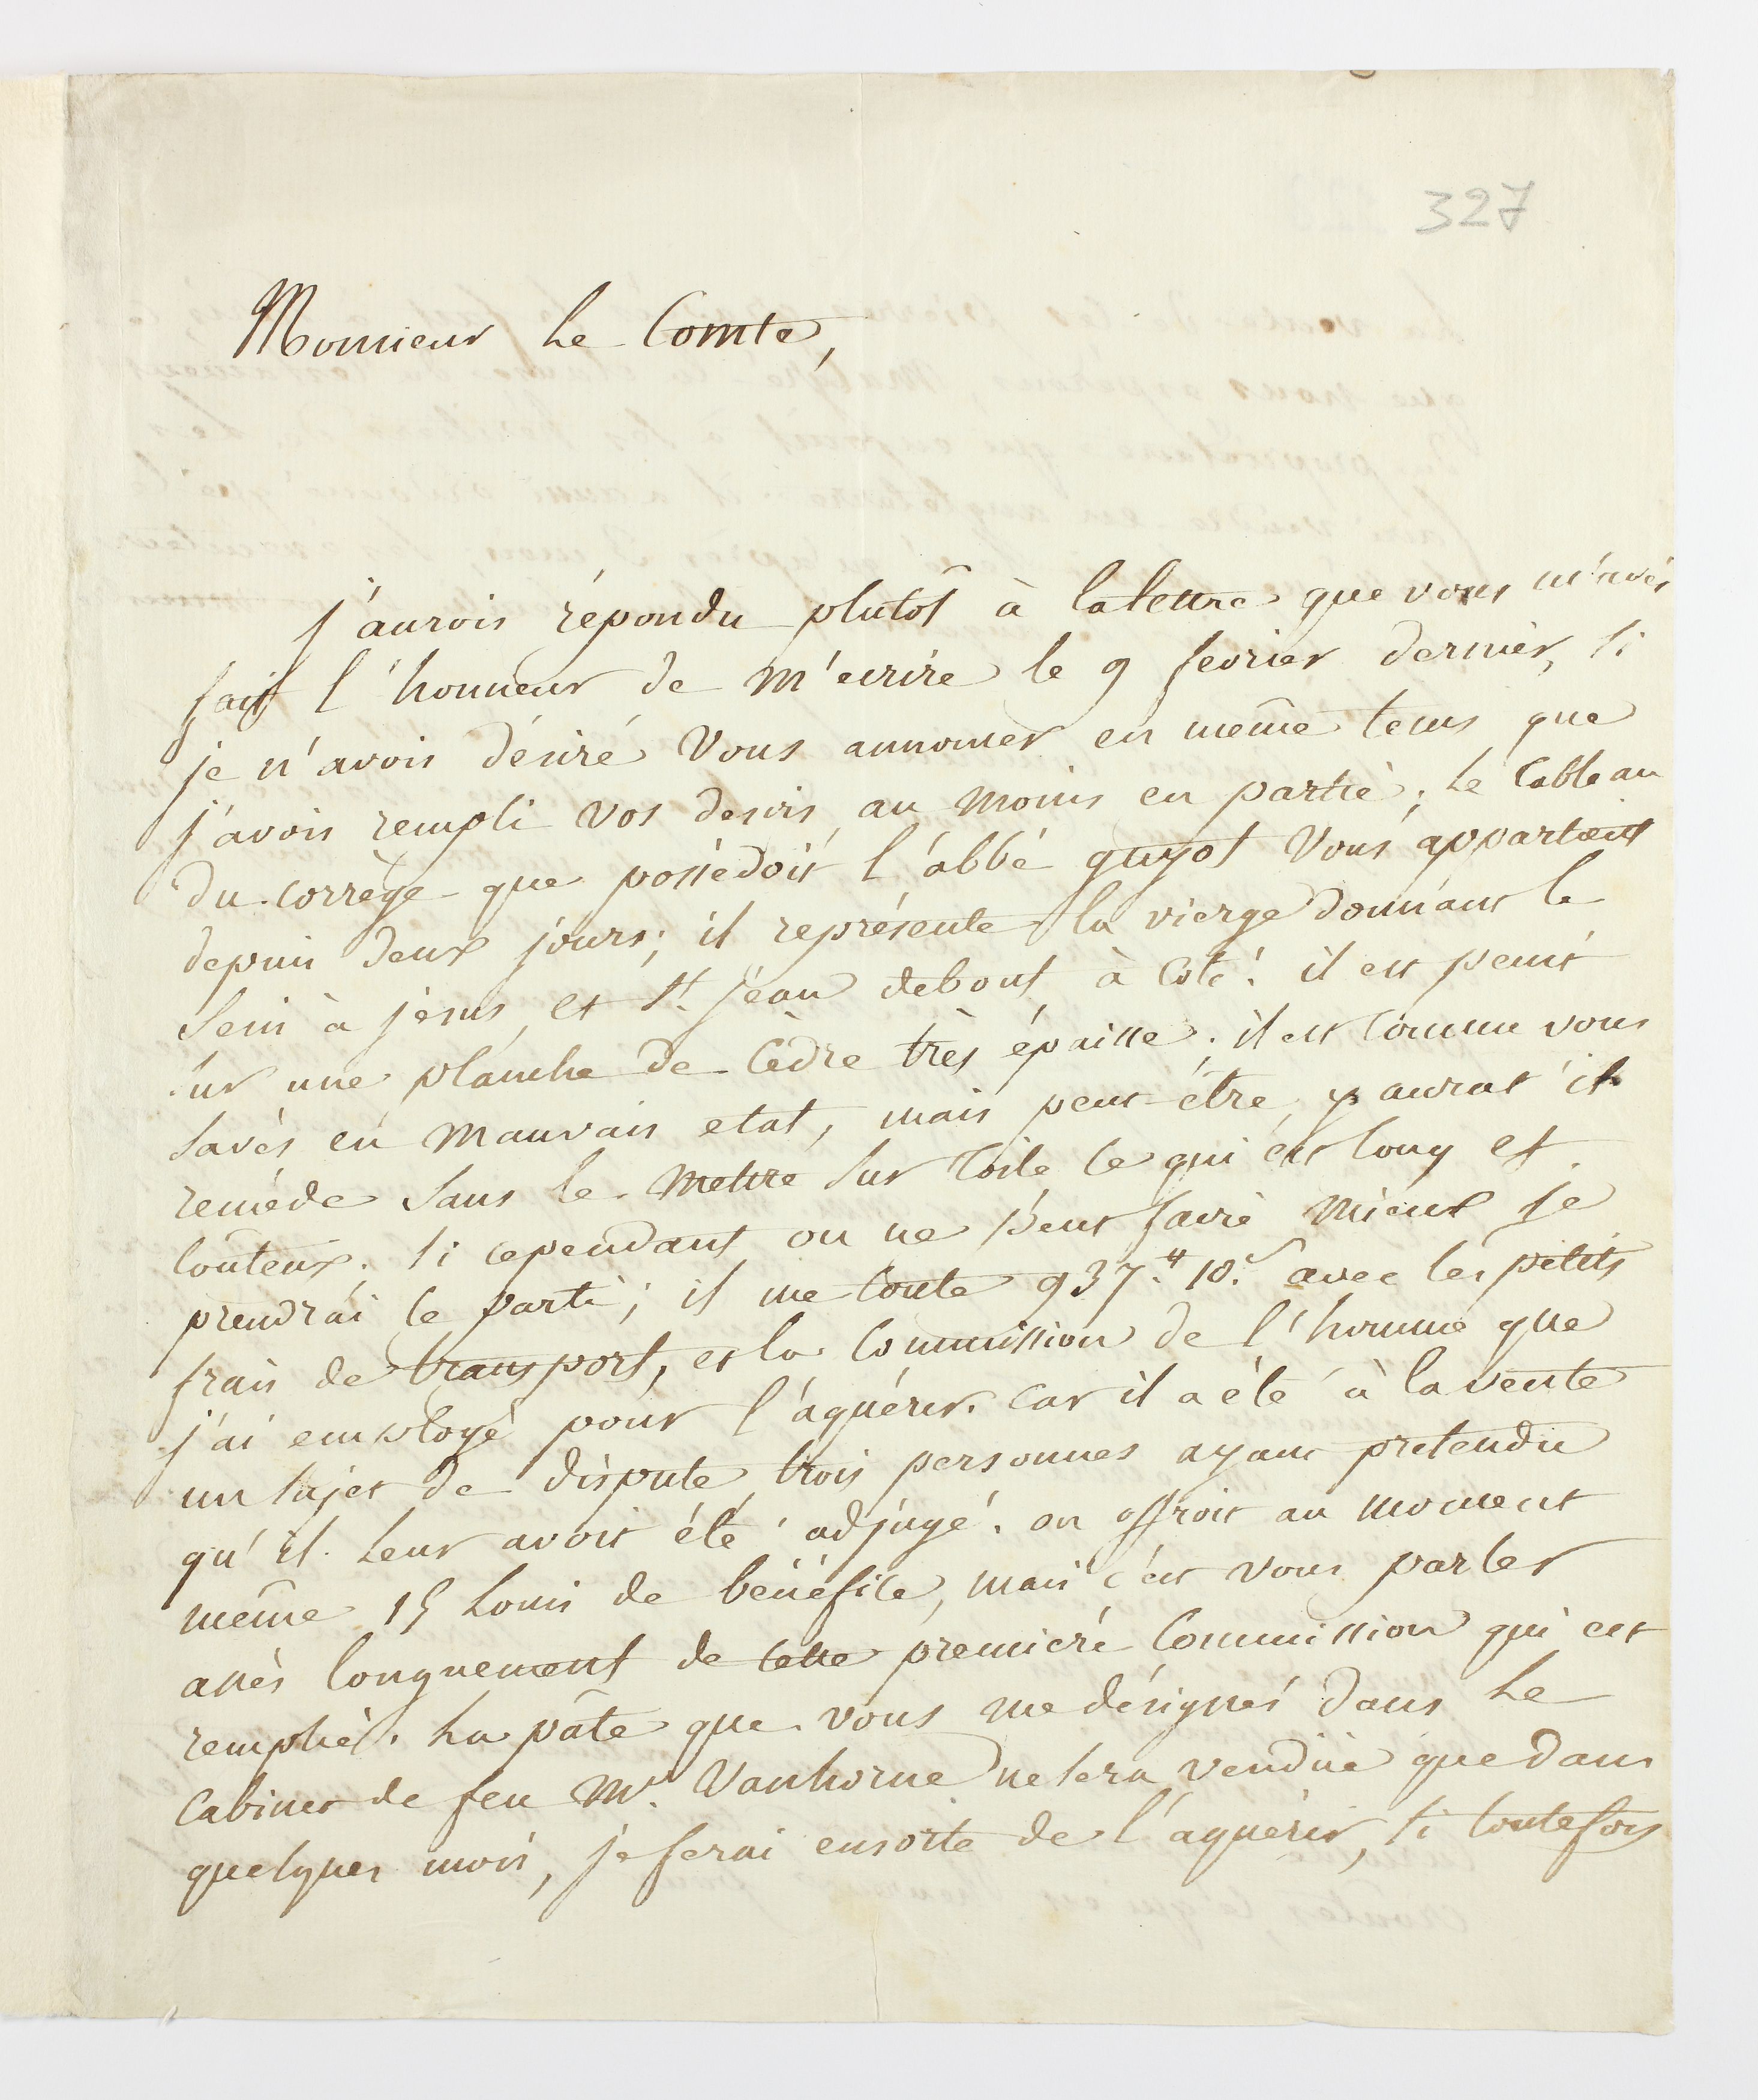 327
Monsieur le Comte,
j'aurois répondu plutôt à la lettre que vous m'avés
fait l'honneur de m'ecrire le 9 fevrier dernier, si
je n'avois désiré vous annoncer en même tems que
j'avois rempli vos desirs au moins en partie; le tableau
du correge que possèdoit l'abbé guyot vous appartient
depuis deux jours; il représente la vierge donnant le
sein à jesus, et St. jean debout à coté. il est peint
sur une planche de cèdre très épaisse; il est comme vous
savés en mauvais etat, mais peut-être y aurat il
reméde sans le mettre sur toile, ce qui est long et
couteux. si cependant on ne peut faire mieux je
prendrai ce parti; il me coute 937.ᵗᵗ 10.ˢ avec les petits
frais de transport, et la commission de l'homme que
j'ai employé pour l'aquérir. car il a été à la vente
un sujet de dispute, trois personnes ayant pretendu
qu'il leur avoit été adjugé. on offroit au moment
même 15 Louis de bénéfice, mais c'est vous parler
assès longuement de cette premiere commission qui est
remplie. La pâte que vous me désignés dans le
cabinet de feu Mr. Vanhorne ne sera vendüe que dans
quelques mois, je ferai ensorte de l'aquérir, si toutefois